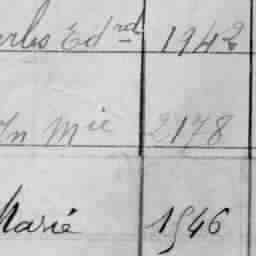 arles Edrd 1942
Jn Mie 2178
Marie 1546